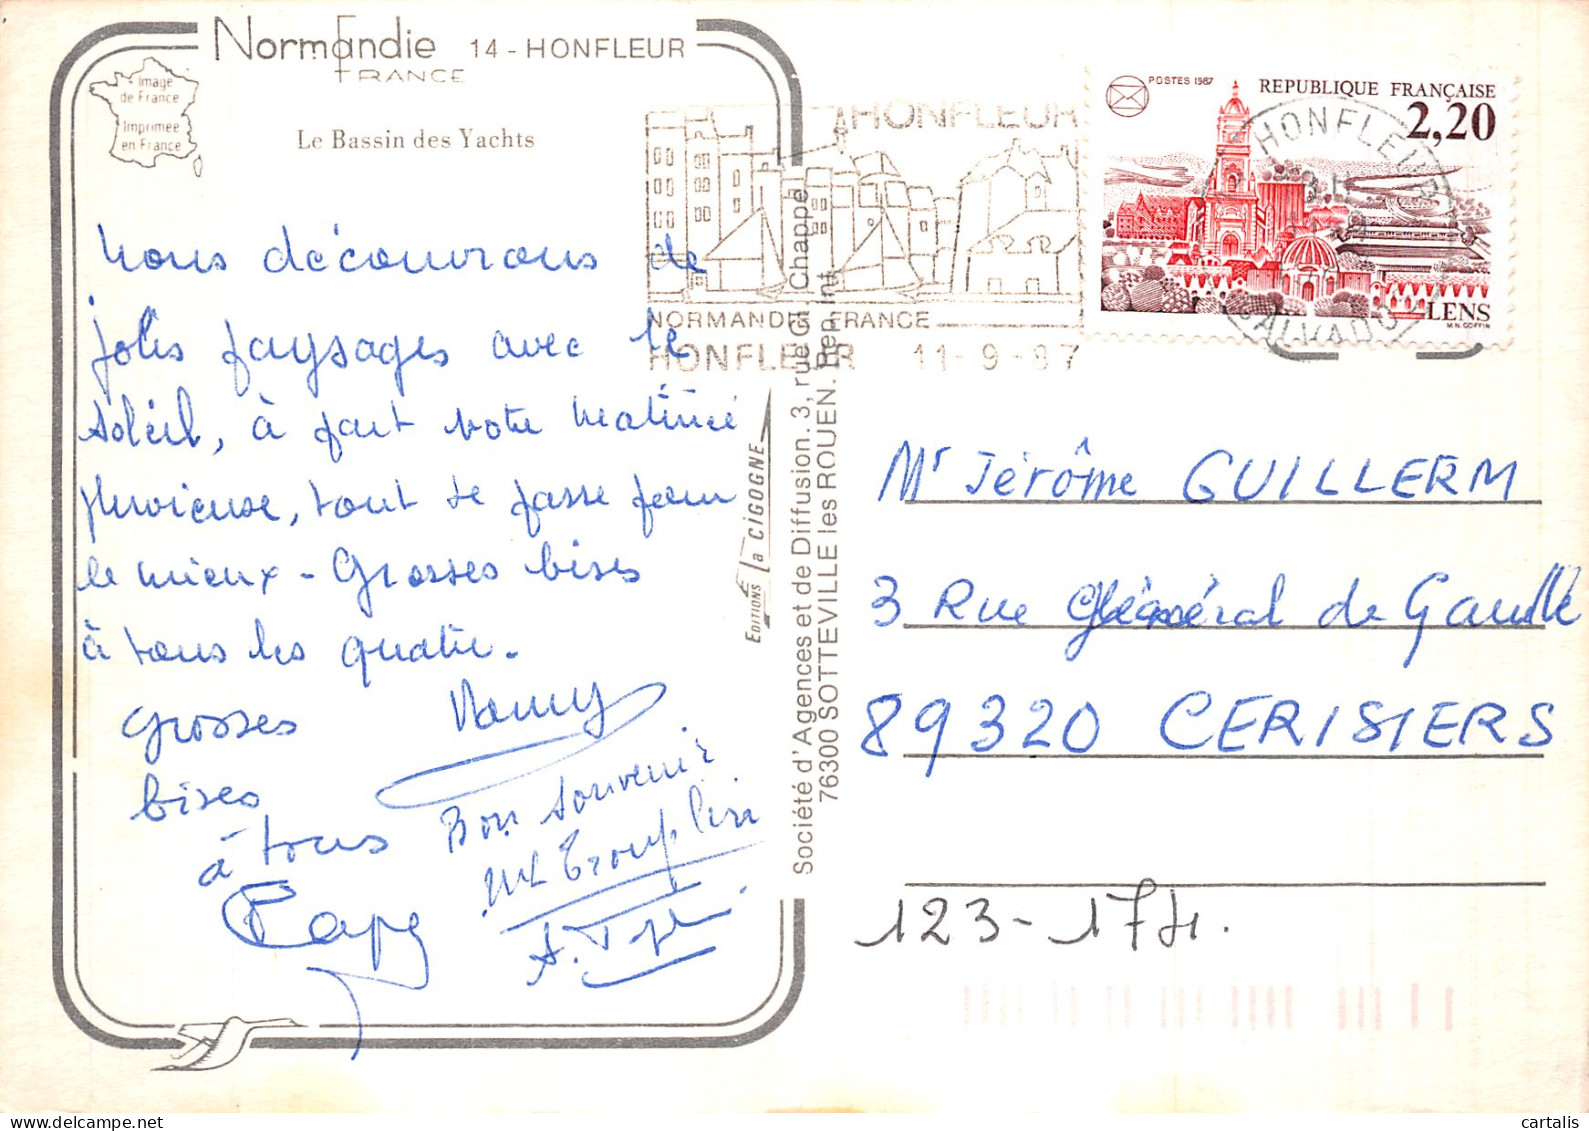 Normandie 14 - HONFLEUR
FRANCE
Image
de France
Imprimée
en France
Le Bassin des Yachts
Nous découvrons de
jolis paysages avec le
soleil, à part notre matinée
pluvieuse, tout se passe pour
le mieux - Grosses bises
à tous les quatre.
Grosses
bises
à tous
Papy
Mamy
Bon souvenir
A. T
EDITIONS La CIGOGNE
Société d'Agences et de Diffusion. 3, rue Cl. Chappe
76300 SOTTEVILLE les ROUEN.
HONFLEUR
NORMANDIE FRANCE
HONFLEUR 11-9-87
POSTES 1987
REPUBLIQUE FRANÇAISE
2,20
LENS
M.N. GOFFIN
HONFLEUR
CALVADOS
Mr Jérôme GUILLERM
3 Rue Général de Gaulle
89320 CERISIERS
123-174.
cartalis